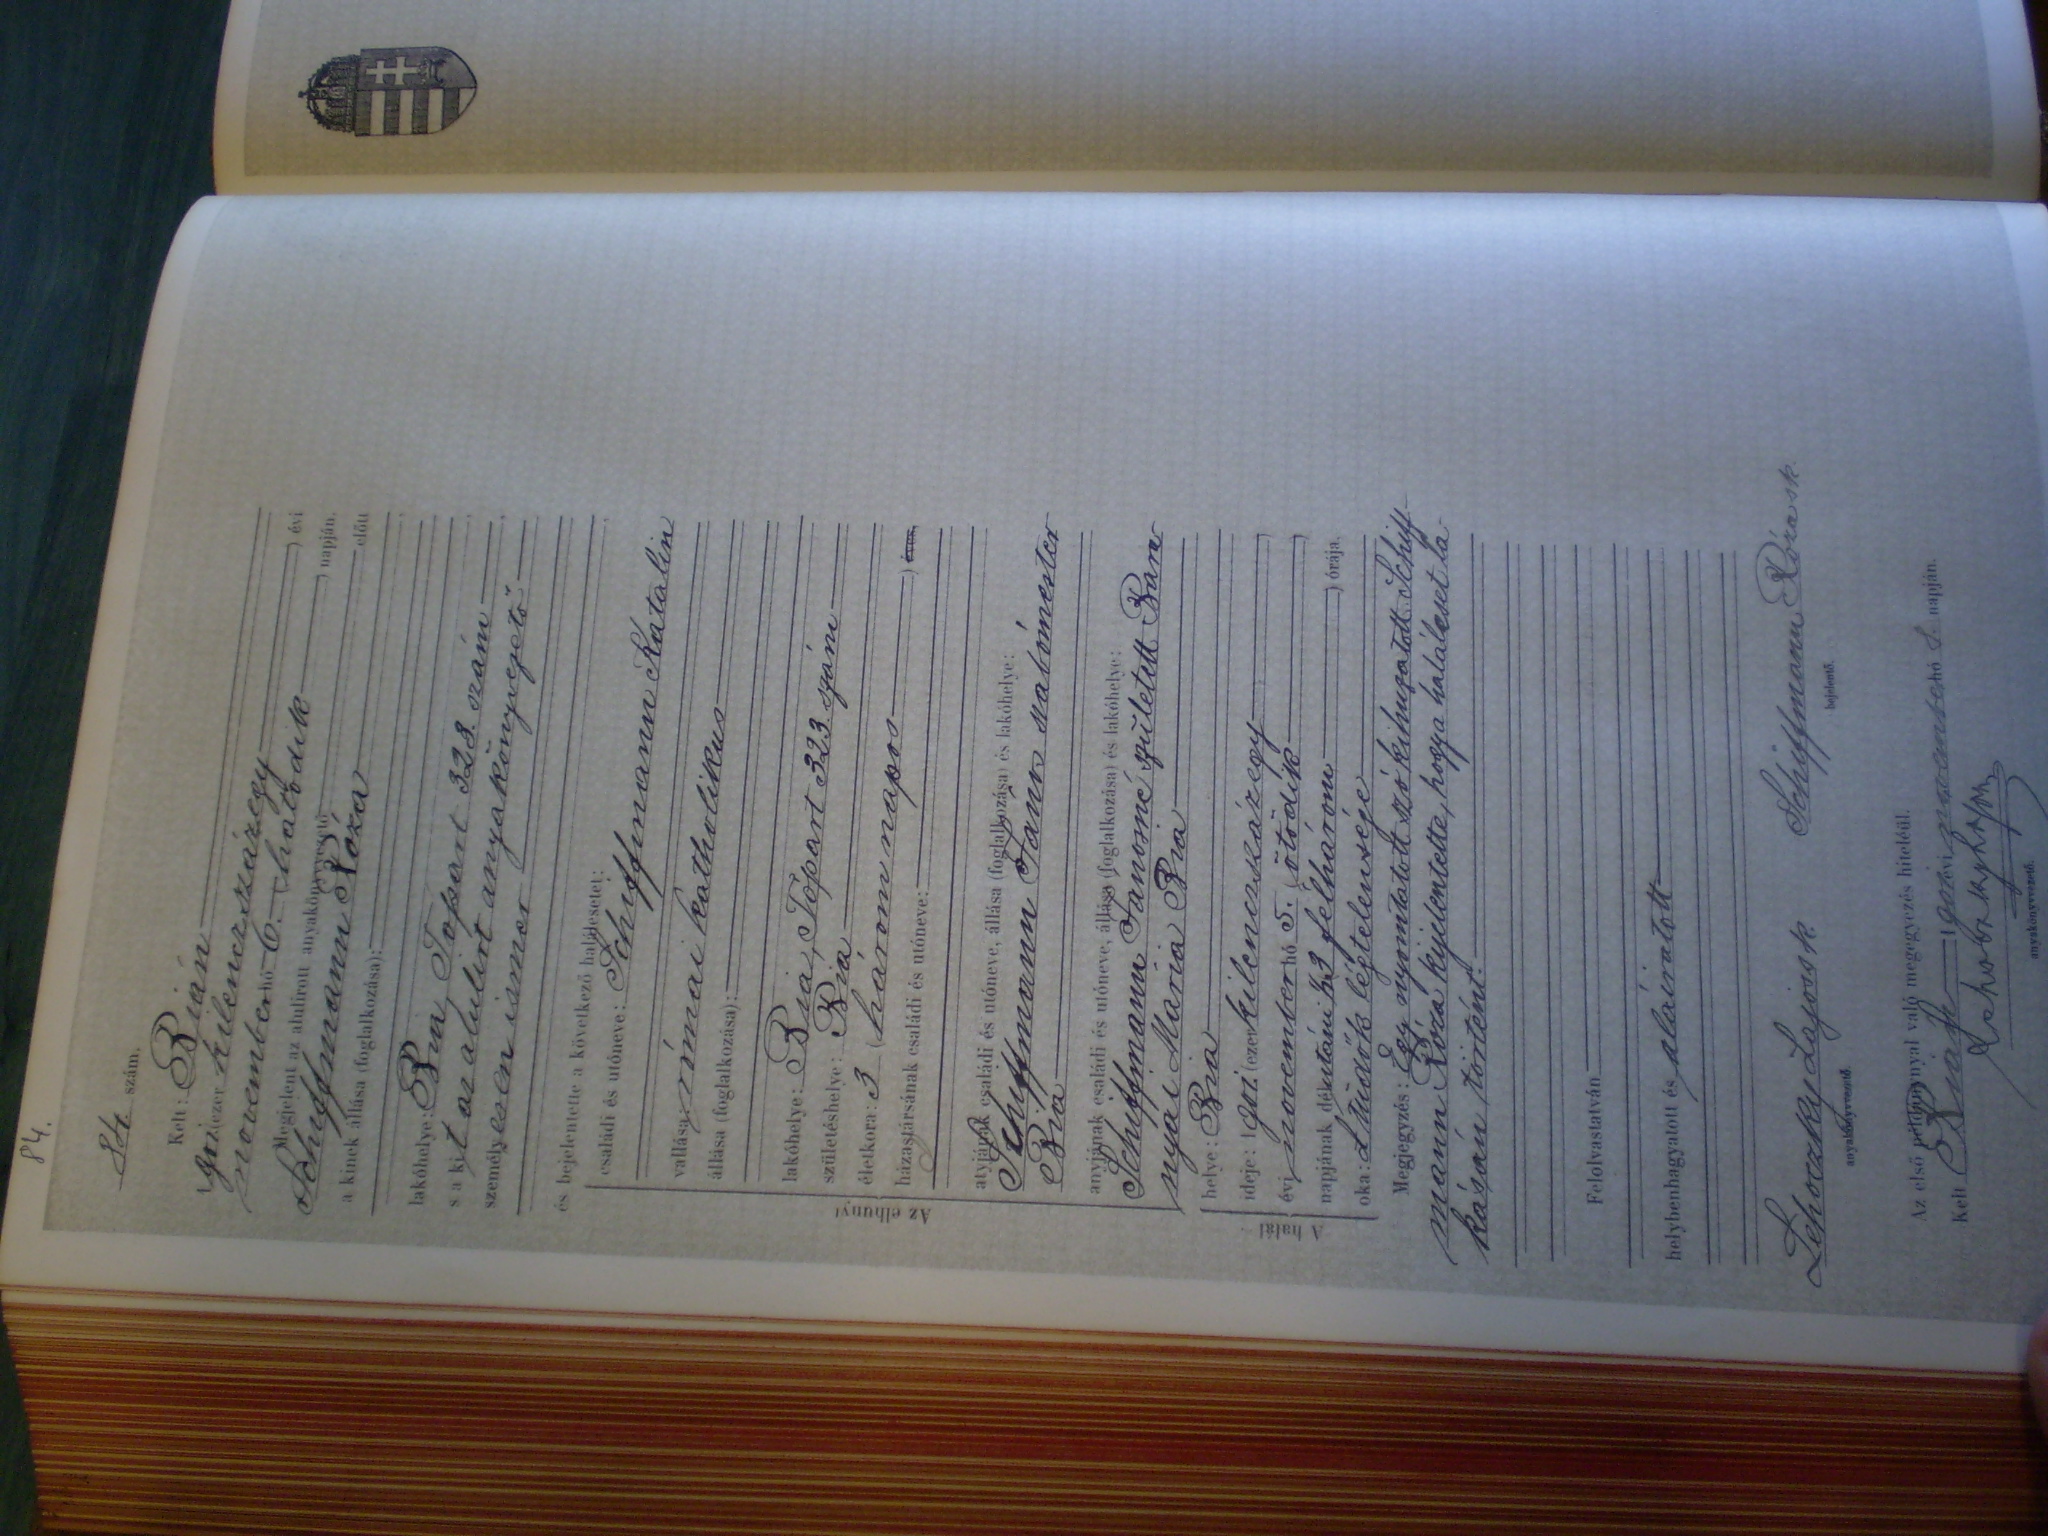 84.
84 szám.
Kelt: Bián
901. (ezer kilenczszázegy ) évi
november hó 6. (hatodik ) napján.
Megjelent az alulirott anyakönyvvezető előtt
Schiffmann Róza
a kinek állása (foglalkozása):
lakóhelye: Bia Tópart 328 szám
s a kit az alulirt anyakönyvvezető
személyesen ismer
és bejelentette a következő halálesetet:
Az elhunyt
családi és utóneve: Schiffmann Katalin
vallása: római katholikus
állása (foglalkozása):
lakóhelye: Bia, Tópart 323 szám
születéshelye: Bia
életkora: 3 (három napos ) éves
házastársának családi és utóneve:
atyjának családi és utóneve, állása (foglalkozása) és lakóhelye:
Schiffmann János szabómester
Bia
anyjának családi és utóneve, állása (foglalkozása) és lakóhelye:
Schiffmann Jánosné született Bara
nyai Mária Bia
A halál
helye: Bia
ideje: 1901. (ezer kilenczszázegy )
évi november hó 5. (ötödik )
napjának délutáni ½3 (félhárom ) órája.
oka: A tüdők légtelensége
Megjegyzés: Egy nyomtatott szó kihuzatott. Schiff-
mann Róza kijelentette, hogy a haláleset la
kásán történt.
Felolvastatván
helybenhagyatott és aláiratott
Lehoczky Lajos sk Schiffmann Róza sk.
anyakönyvvezető. bejelentő.
Az első példánnyal való megegyezés hiteléül.
Kelt Bián 1901 évi november hó napján.
anyakönyvvezető.